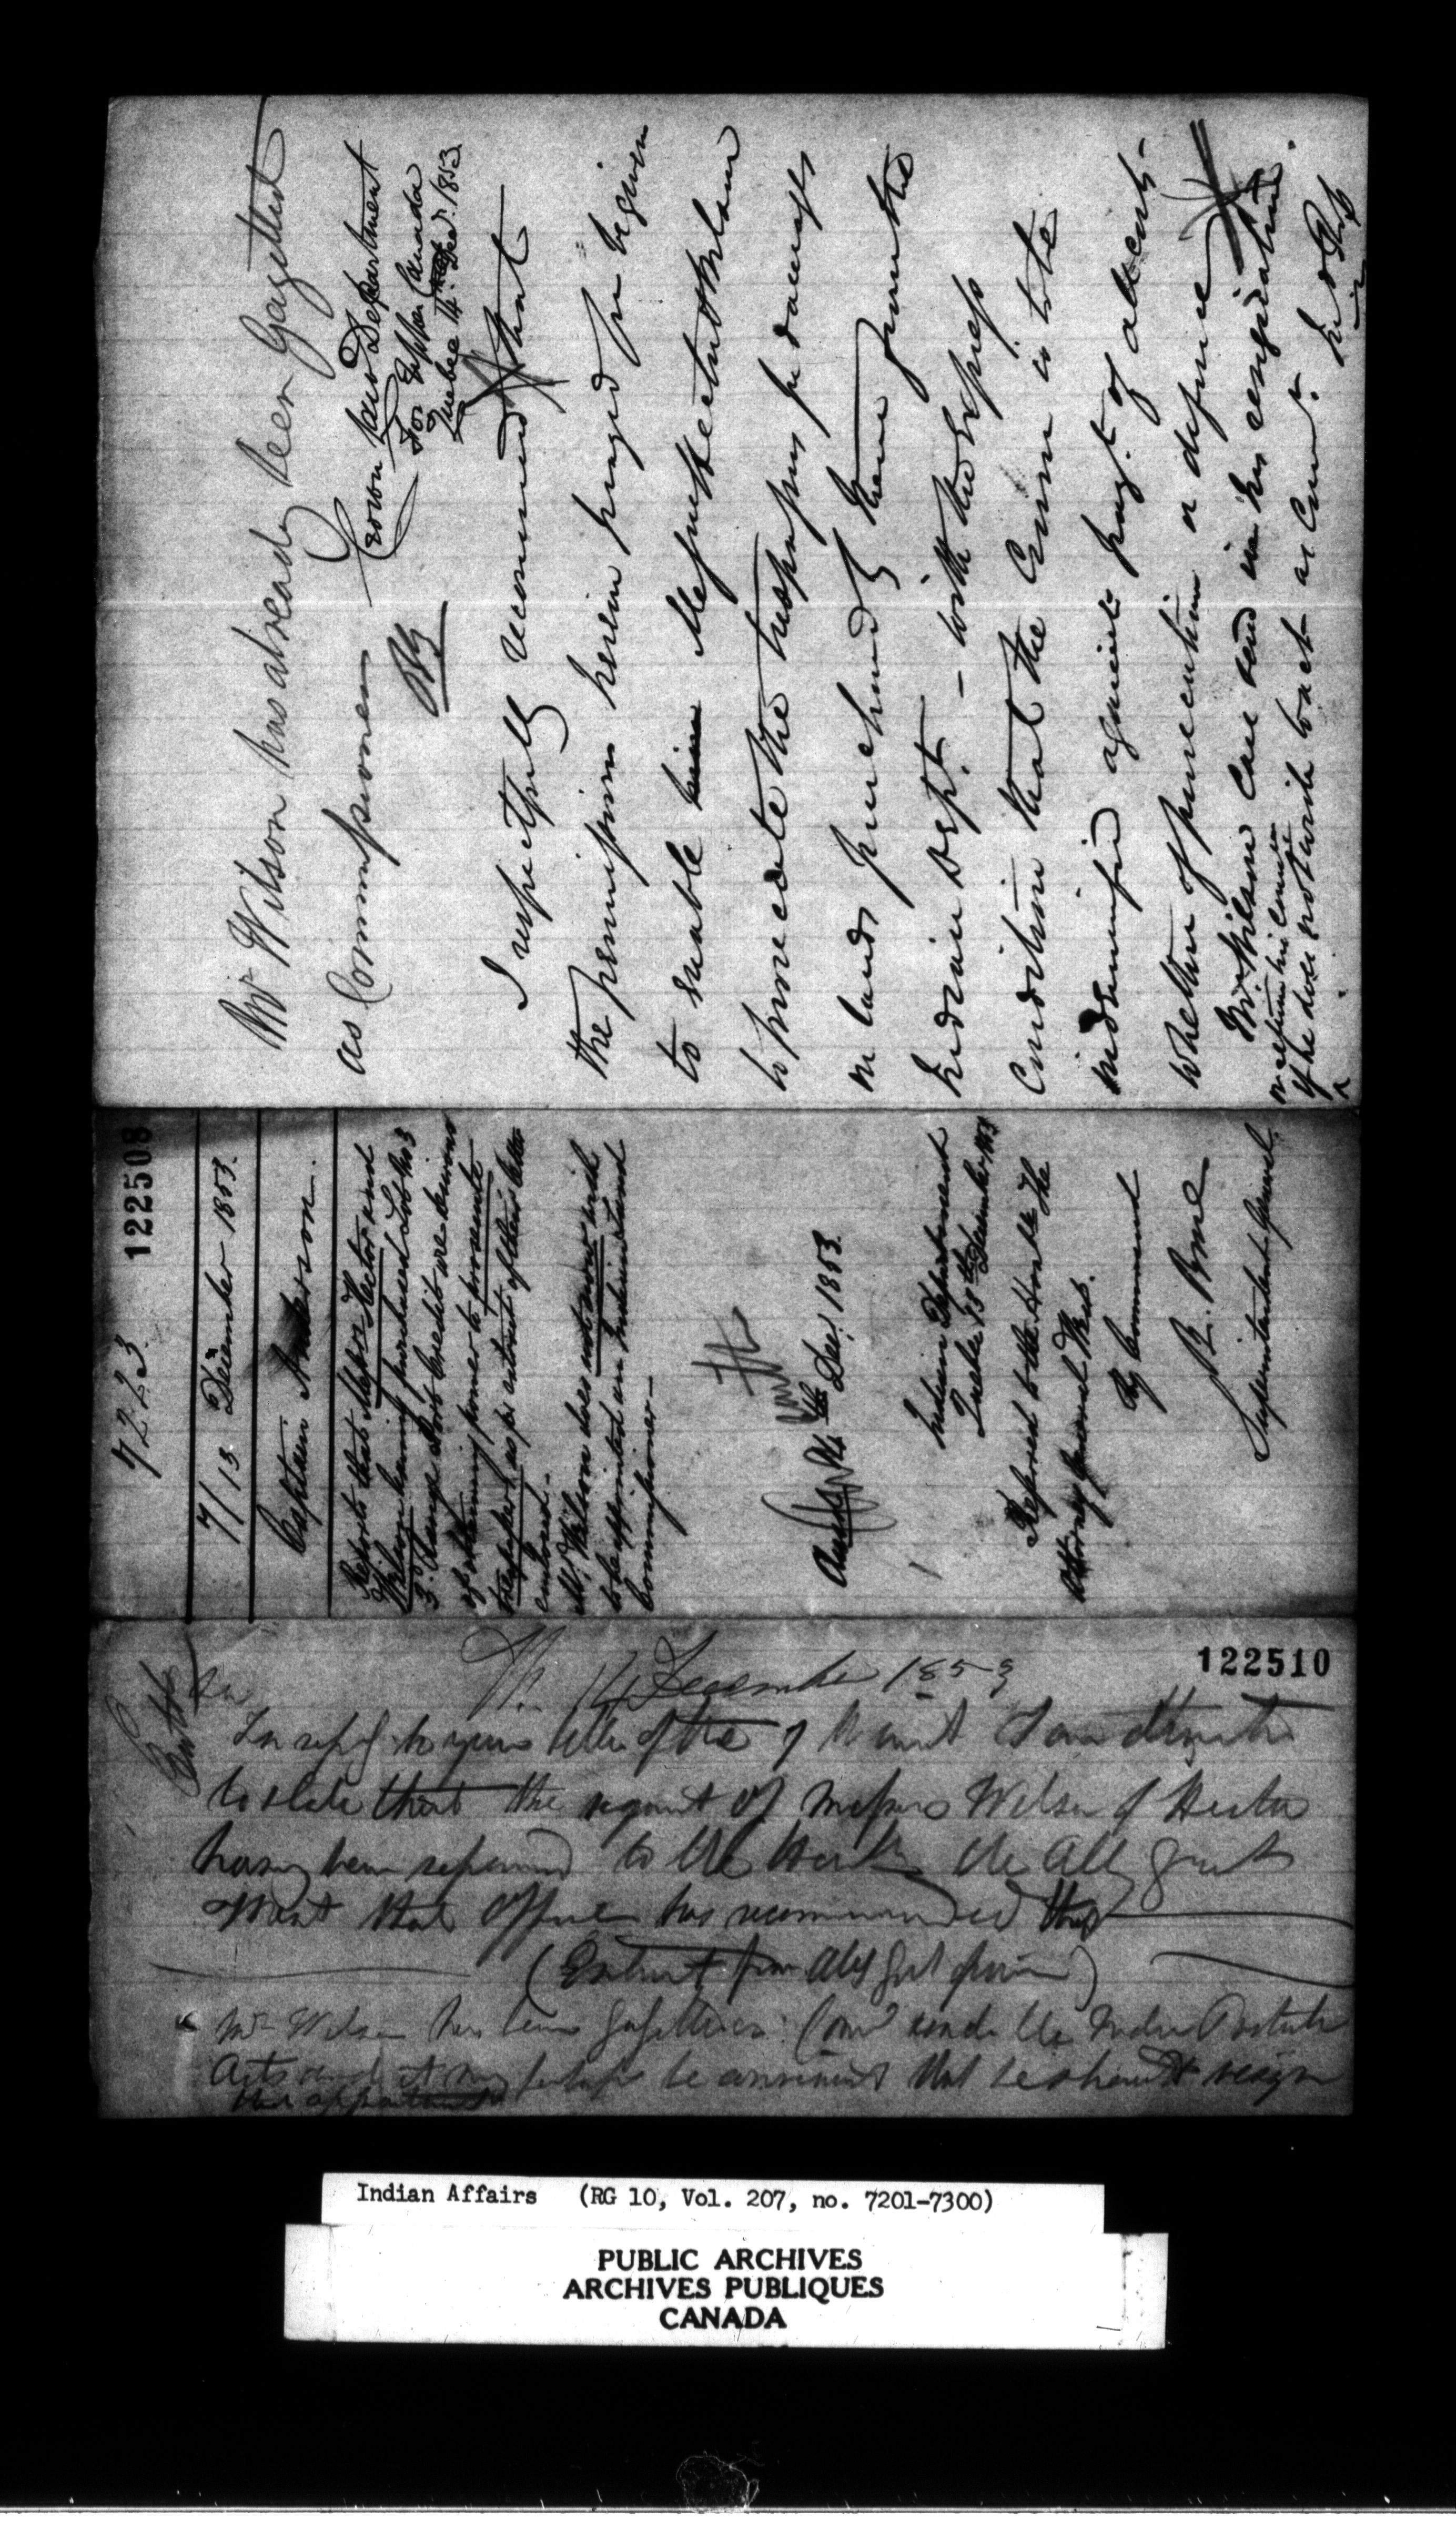 Mr Wilson has already been Gazetted
as Commissioner
Crown Law Department
For Upper Canada
Quebec 14 Decr. 1853.
I respectfully recommend that
the permission herein prayed for be given
to enable Messrs Hector & Wilson
to prosecute the trespassers for damages
on lands purchased by them from the
Indian Dept. - with the express
condition that the Crown is to be
indemnified against paymt. of all costs
whether of prosecution or defence
Mr Wilson
if he does not wish to act as Comr.
122508
7223
7/13 December 1853.
Captain Anderson.
Reports that Messrs Hector and
Wilson having purchased Lot No 3
3d Range
of obtaining power to prosecute
trespassers as per extract of their letter
enclosed.-
Mr Wilson does not now wish
to be appointed an Indian Land
Commissioner-
Dec. 1853.
Indian Department
Quebec 13th December 1853
Referred to the Honble The
Attorney General West.
By Command
R. Bruce
Superintendent General
122510
14 December 1853
Sir
In reply to your letter of the 7 Instant I am directed
to state that the request of Messrs Wilson & Hector
having been referred to the Honble the Atty Genl
West that Officer has recommended that
(Extract from Atty Genl opinion)
Mr Wilson has been gazetted as Comr under the Indian Protection
Acts and it may perhaps be convenient that he should resign
that appointment
Indian Affairs (RG 10, Vol. 207, no. 7201-7300)
PUBLIC ARCHIVES
ARCHIVES PUBLIQUES
CANADA